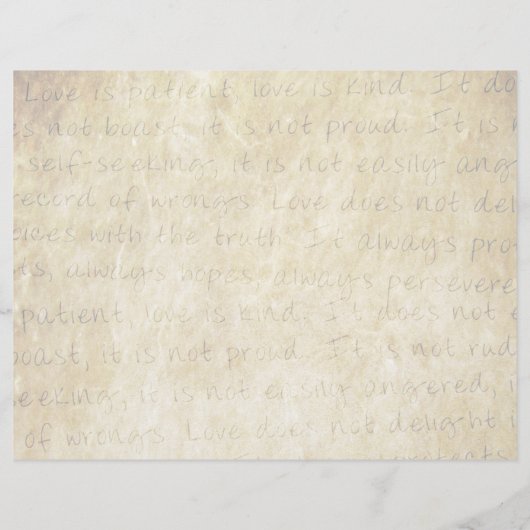 Love is patient, love is kind. It do
es not boast, it is not proud. It is n
self-seeking, it is not easily ang
record of wrongs. Love does not del
oices with the truth. It always pro
ts, always hopes, always persevere
patient, love is kind. It does not e
boast, it is not proud. It is not rud
seeking, it is not easily angered, i
of wrongs. Love does not delight i
protects